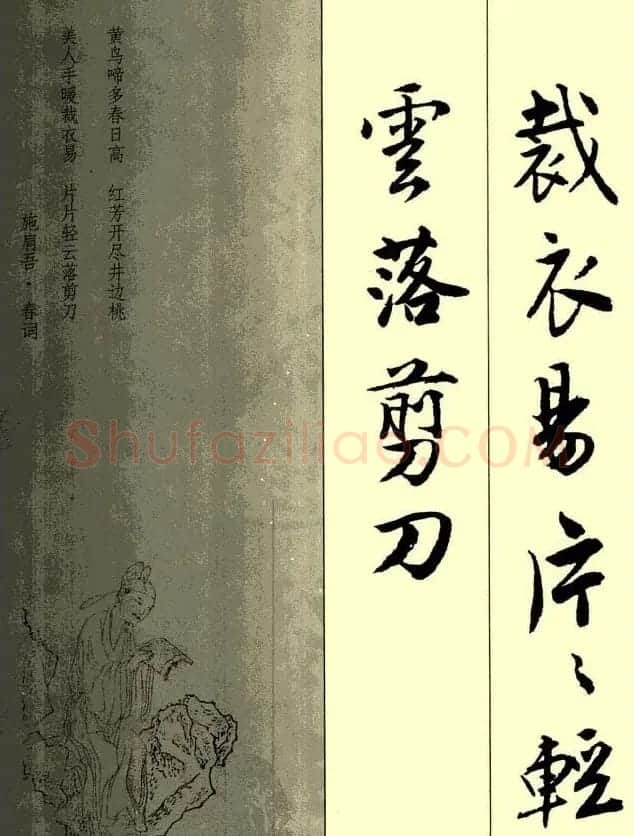 裁衣易片〻輕
雲落剪刀
黄鸟啼多春日高　红芳开尽井边桃
美人手暖裁衣易　片片轻云落剪刀
施肩吾·春词
Shufaziliao.COM